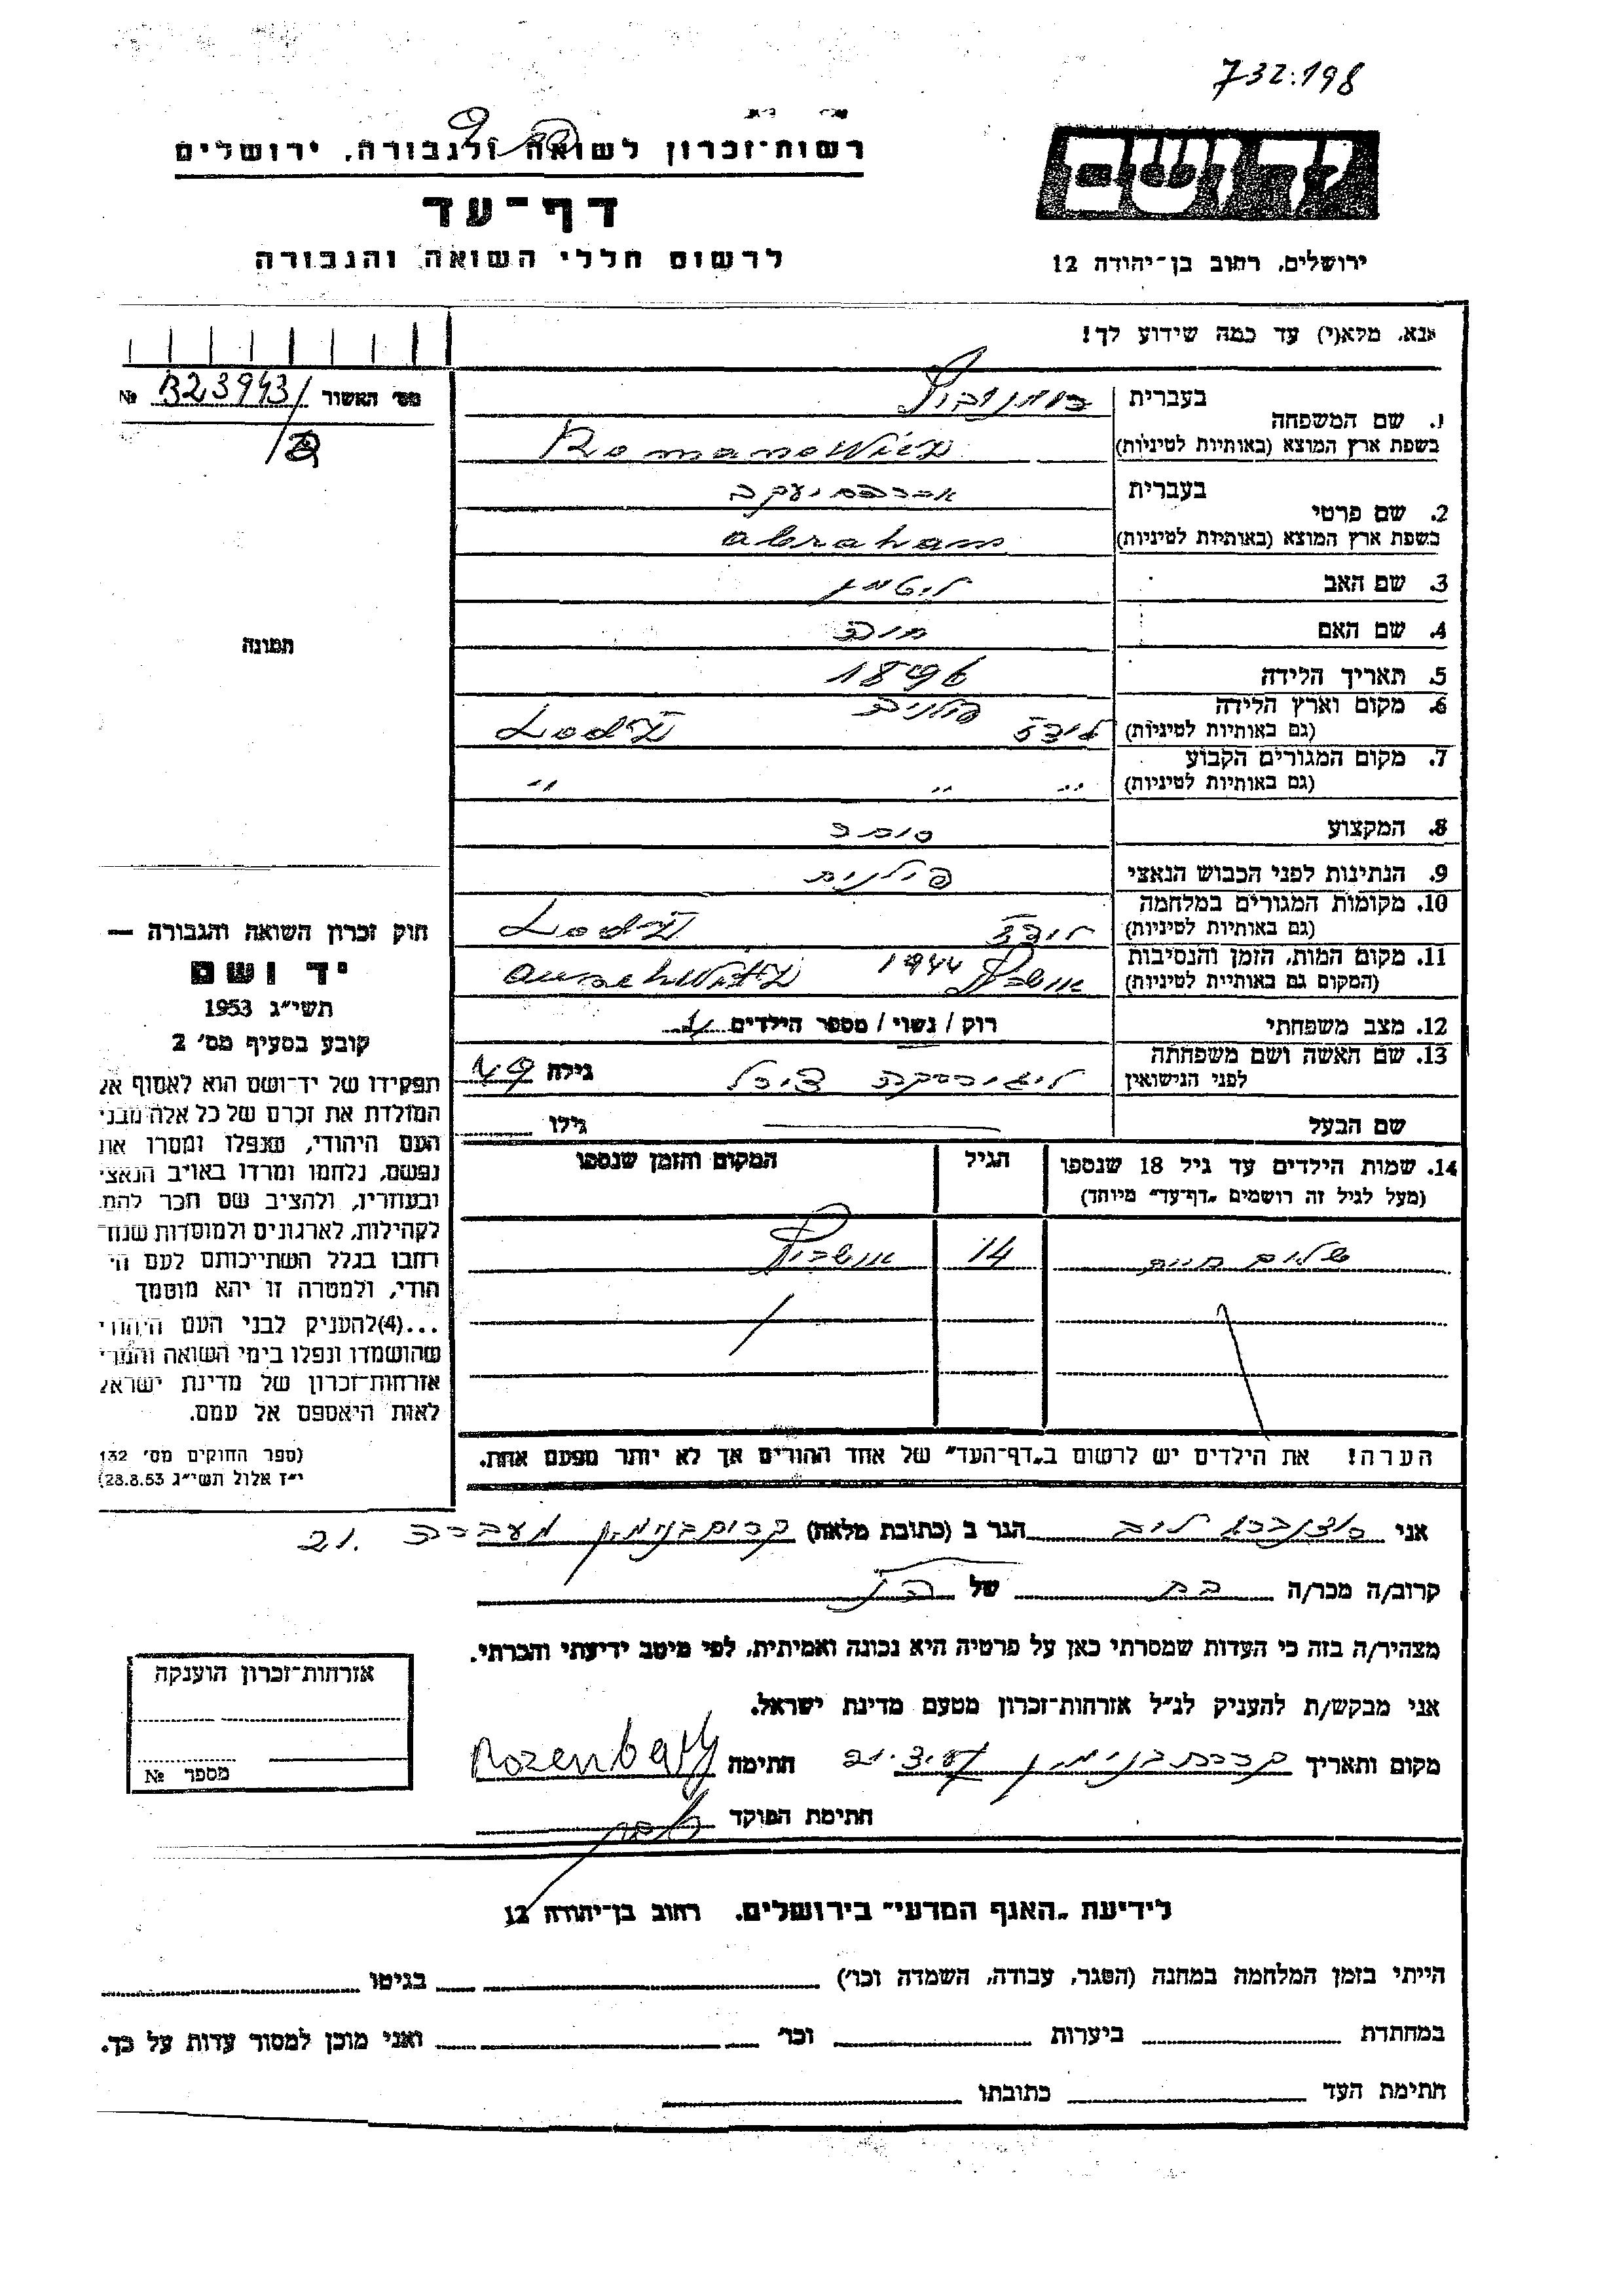 732:198
רשות־זכרון לשואה ולגבורה, ירושלים
דף־עד
לרשום חללי השואה והגבורה
ידושם
ירושלים, רחוב בן־יהודה 12
אנא, מלא(י) עד כמה שידוע לך!
מס׳ האשור B23943/ №
1. שם המשפחה
בעברית רומנוביץ
בשפת ארץ המוצא (באותיות לטיניות) Romanowicz
2. שם פרטי
בעברית אברהם יעקב
בשפת ארץ המוצא (באותיות לטיניות) abraham
3. שם האב ליטמן
4. שם האם
5. תאריך הלידה 1896
6. מקום וארץ הלידה פולניה
(גם באותיות לטיניות) לודז Lodz
7. מקום המגורים הקבוע
(גם באותיות לטיניות) ,, ,, ,,
8. המקצוע סוחר
9. הנתינות לפני הכבוש הנאצי פולנית
10. מקומות המגורים במלחמה
(גם באותיות לטיניות) לודז Lodz
11. מקום המות, הזמן והנסיבות
(המקום גם באותיית לטיניות) אושביץ 1944 auschwitz
12. מצב משפחתי רוק / נשוי / מספר הילדים
13. שם האשה ושם משפחתה
לפני הנישואין גילה 49
שם הבעל גילו
14. שמות הילדים עד גיל 18 שנספו
(מעל לגיל זה רושמים „דף־עד״ מיוחד)
הגיל
המקום והזמן שנספו
שלום חיים 14 אושביץ
הערה! את הילדים יש לרשום ב„דף־העד״ של אחד ההורים אך לא יותר מפעם אחת.
תמונה
חוק זכרון השואה והגבורה —
יד ושם
תשי״ג 1953
קובע בסעיף מס׳ 2
תפקידו של יד־ושם הוא לאסוף אל
המולדת את זכרם של כל אלה מבני
העם היהודי, שנפלו ומסרו את
נפשם, נלחמו ומרדו באויב הנאצי
ובעוזריו, ולהציב שם וזכר להם,
לקהילות, לארגונים ולמוסדות שנח־
רחבו בגלל השתייכותם לעם הי
הודי, ולמטרה זו יהא מוסמך
...(4)להעניק לבני העם היהודי
שהושמדו ונפלו בימי השואה והמרי
אזרחות־זכרון של מדינת ישראל
לאות היאספם אל עמם.
(ספר החוקים מס׳ 132
י״ז אלול תשי״ג 28.8.53)
אני רוזנברג הגר ב (כתובת מלאה) קרית בנימין מעברה 21.
קרוב/ה מכר/ה בת של
מצהיר/ה בזה כי העדות שמסרתי כאן על פרטיה היא נכונה ואמיתית, לפי מיטב ידיעתי והכרתי.
אני מבקש/ת להעניק לנ״ל אזרחות־זכרון מטעם מדינת ישראל.
מקום ותאריך קרית בנימין חתימה Rozenberg
חתימת הפוקד
אזרחות־זכרון הוענקה
מספר №
לידיעת „האגף המדעי״ בירושלים, רחוב בן־יהודה 12
הייתי בזמן המלחמה במחנה (הסגר, עבודה, השמדה וכו׳) בגיטו
במחתרת ביערות וכו׳ ואני מוכן למסור עדות על כך.
חתימת העד כתובתו